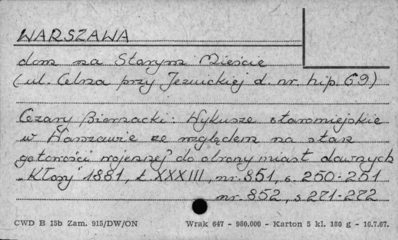 WARSZAWA
dom na Starym Mieście
(ul. Celna przy Jezuickiej d. nr. hip. 69)
Cezary Biernacki: Wykusze staromiejskie
w Warszawie ze względem na stan
gotowości wojennej do obrony miast dawnych
"Kłosy" 1881, t. XXXIII, nr. 851, s. 250-251
nr. 852, s 271-272
CWD B 15b Zam. 915/DW/ON Wrak 647 - 960.000 - Karton 5 kl. 180 g - 10.7.67.